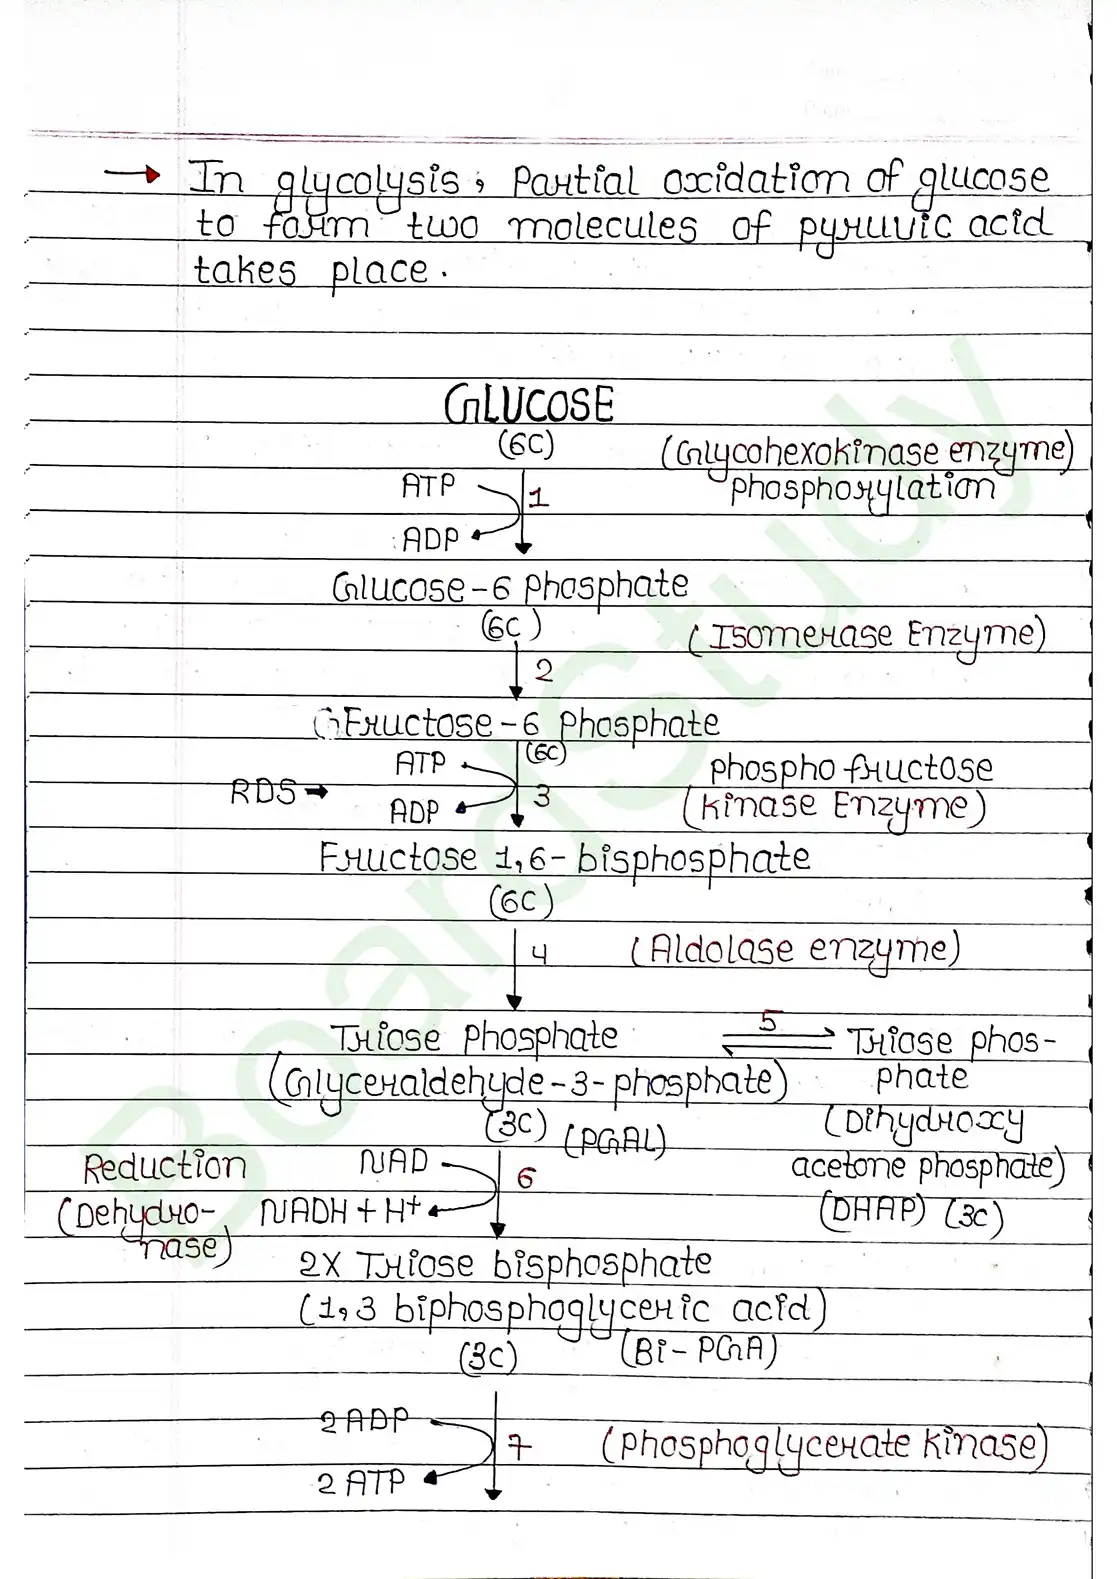 → In glycolysis, Partial oxidation of glucose
to form two molecules of pyruvic acid
takes place.
GLUCOSE
(6C) (Glycohexokinase enzyme)
ATP 1 phosphorylation
ADP
Glucose-6 Phosphate
(6C) (Isomerase Enzyme)
2
GFructose-6 Phosphate
(6C)
ATP phospho fructose
RDS → 3 (Kinase Enzyme)
ADP
Fructose 1,6-bisphosphate
(6C)
4 (Aldolase enzyme)
Triose Phosphate 5 Triose phos-
(Glyceraldehyde-3-phosphate) phate
(3C) (PGAL) (Dihydroxy
Reduction NAD 6 acetone phosphate)
(Dehydro- NADH + H+ (DHAP) (3C)
nase)
2X Triose bisphosphate
(1,3 biphosphoglyceric acid)
(3C) (Bi-PGA)
2 ADP
7 (phosphoglycerate kinase)
2 ATP
BoardStudy